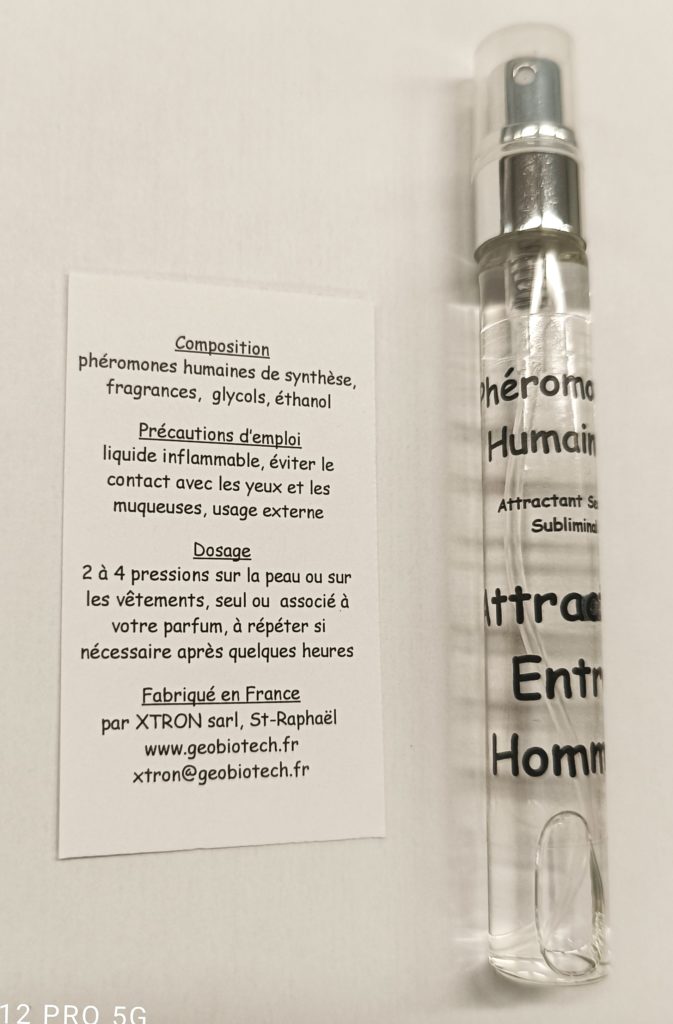 Composition
phéromones humaines de synthèse,
fragrances, glycols, éthanol
Précautions d'emploi
liquide inflammable, éviter le
contact avec les yeux et les
muqueuses, usage externe
Dosage
2 à 4 pressions sur la peau ou sur
les vêtements, seul ou associé à
votre parfum, à répéter si
nécessaire après quelques heures
Fabriqué en France
par XTRON sarl, St-Raphaël
www.geobiotech.fr
xtron@geobiotech.fr
Phéromo
Humain
Attractant Se
Subliminal
Attrac
Entr
Homm
12 PRO 5G